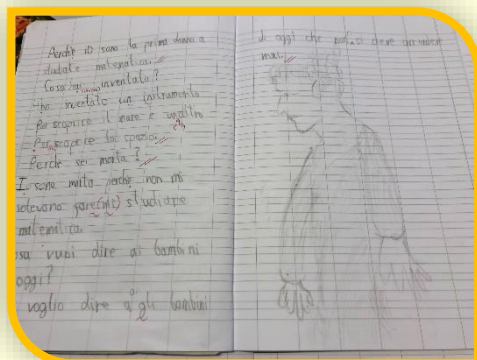 Perché io sono la prima donna a
studiate matematica.
Cosa hai inventato?
ho inventato un instrumento
per scoprire il mare e un altro
Per scoprire lo spazio.
Perche sei morta?
I sono morta perché non mi
volevano fare studiare
matematica.
osa vuoi dire ai bambini
oggi?
voglio dire a gli bambini
di oggi che non si deve arrendere
mai.